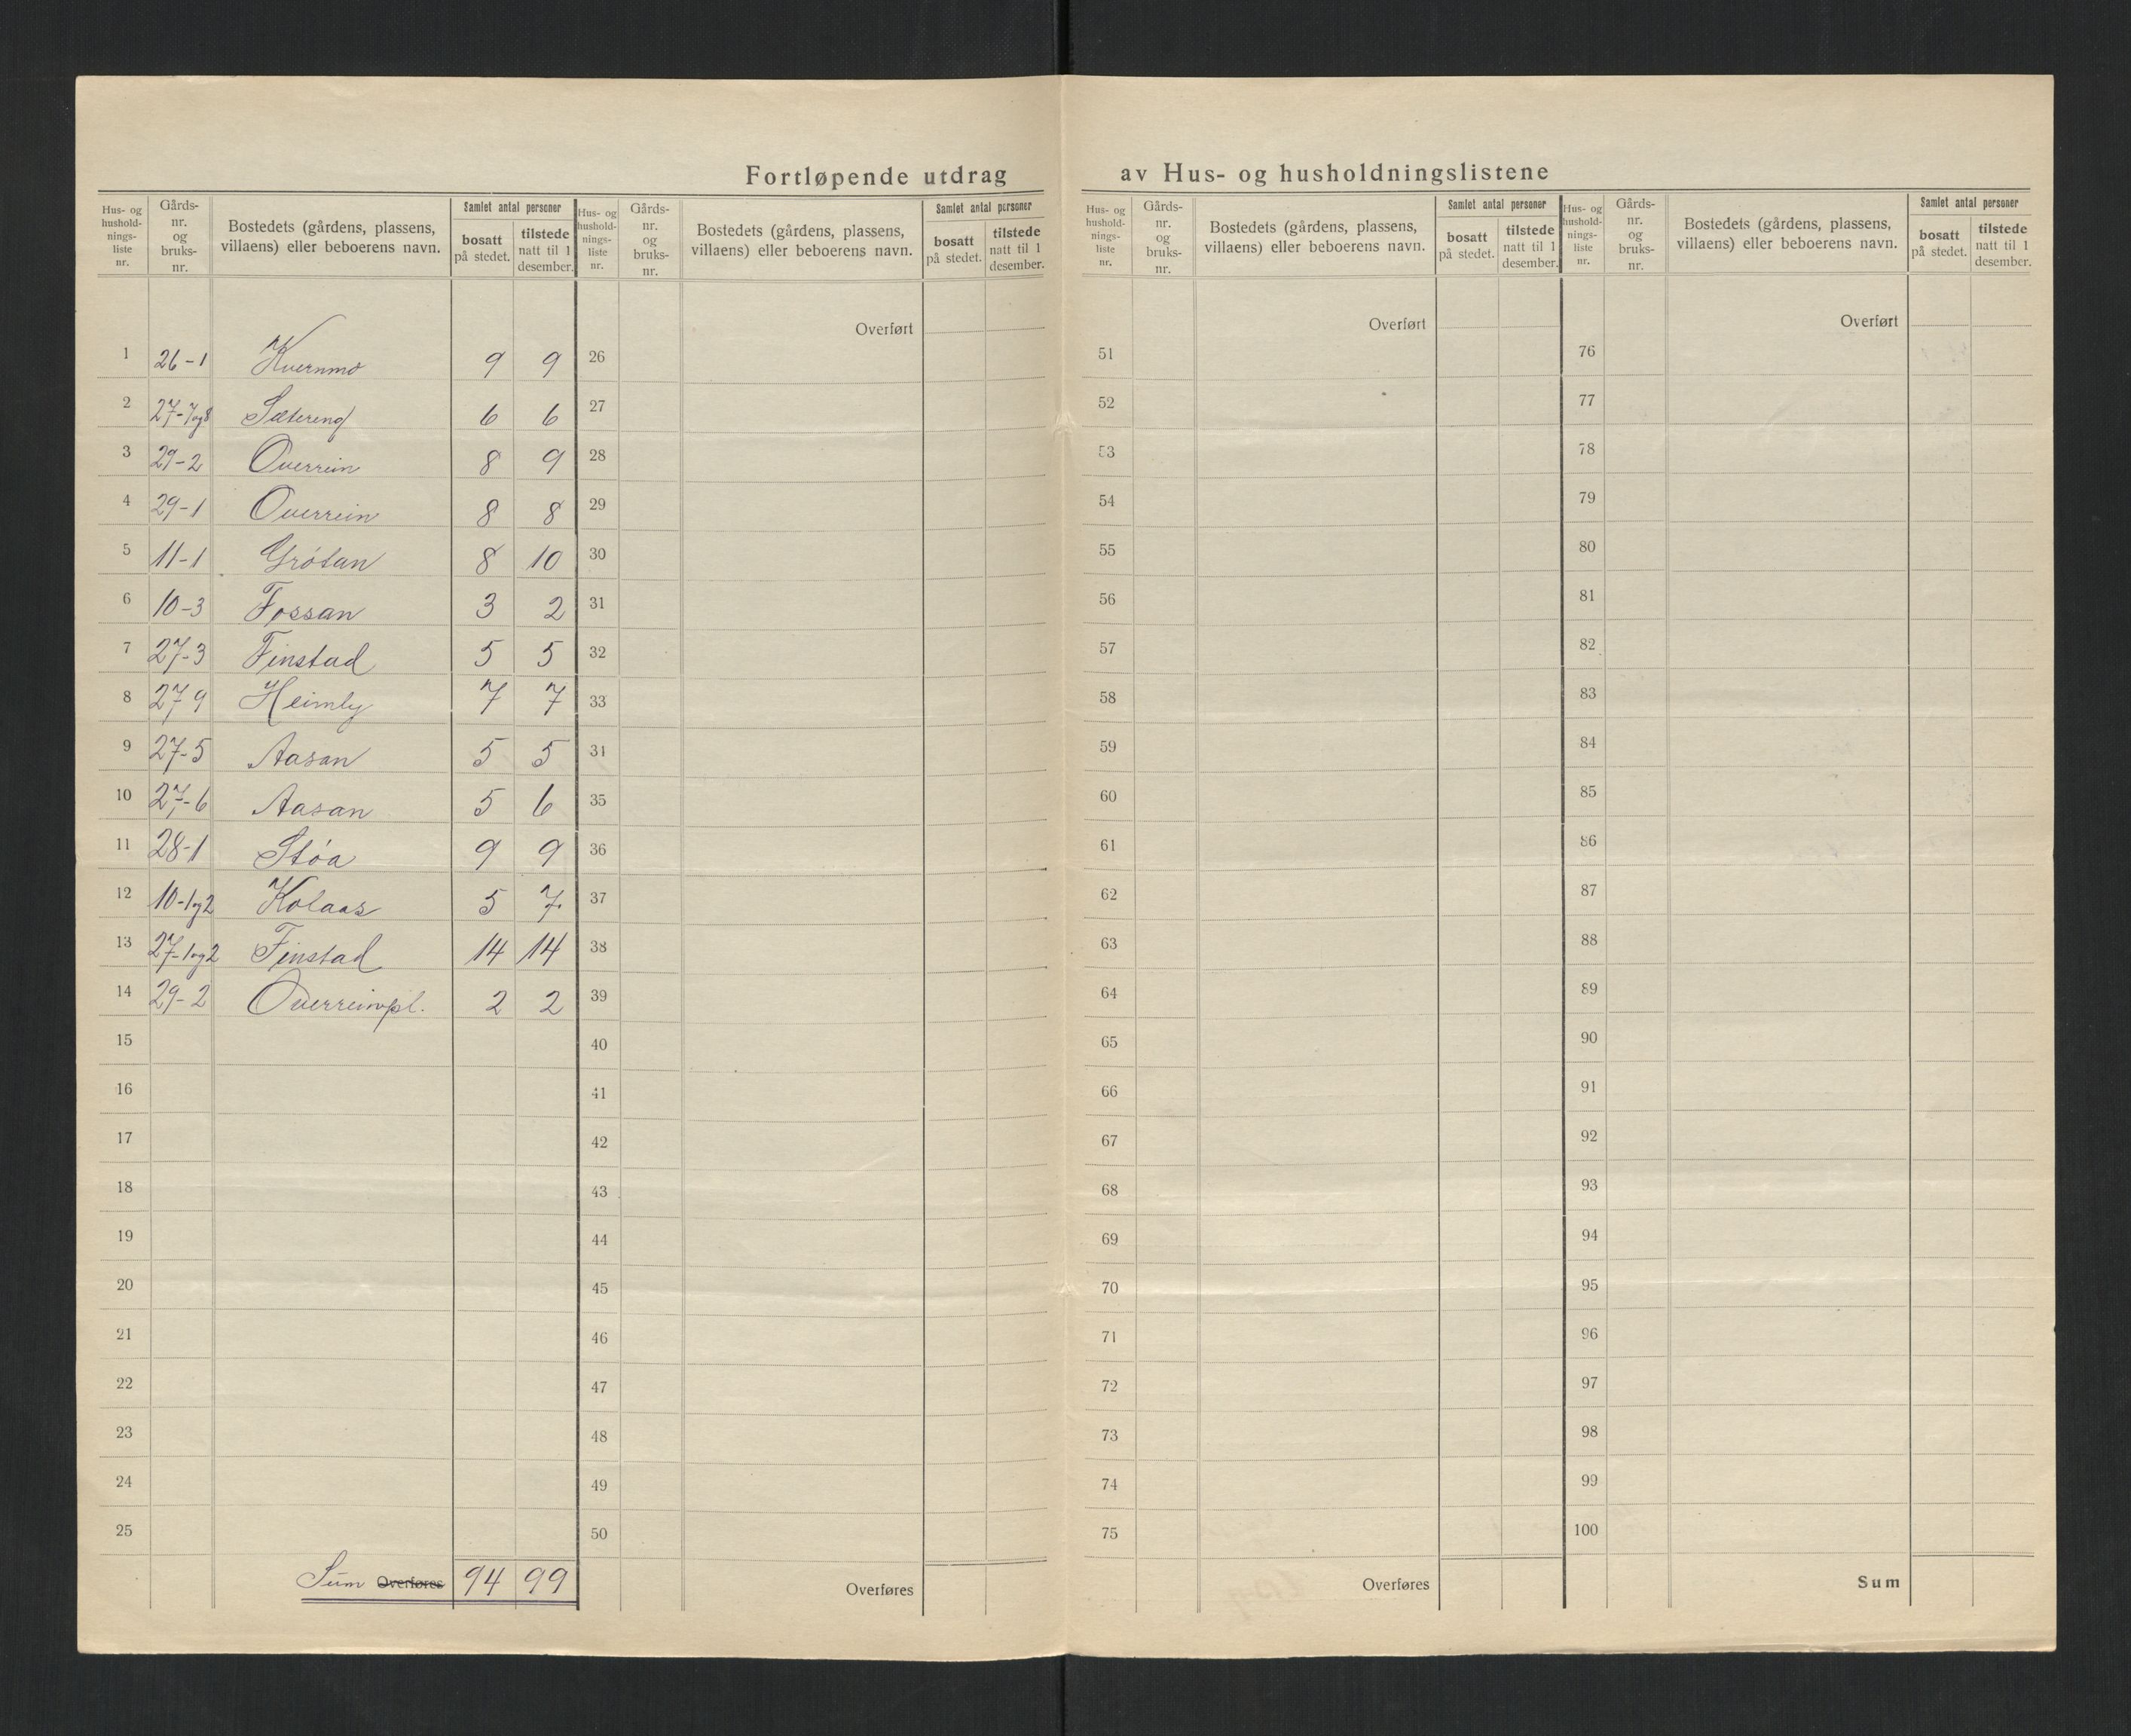 Fortløpende utdrag av Hus- og husholdningslistene
Hus- og hushold-nings-liste nr. | Gårds-nr. og bruks-nr. | Bostedets (gårdens, plassens, villaens) eller beboerens navn. | Samlet antal personer | bosatt på stedet. | tilstede natt til 1 desember.
1 26-1 Kvernmo 9 9
2 27-7og8 Sætereng 6 6
3 29-2 Overrein 8 9
4 29-1 Overrein 8 8
5 11-1 Grótan 8 10
6 10-3 Fossan 3 2
7 27-3 Finstad 5 5
8 27 9 Heimly 7 7
9 27-5 Aasan 5 5
10 27-6 Aasan 5 6
11 28-1 Støa 9 9
12 10-1og2 Kolaas 5 7
13 27-1og2 Finstad 14 14
14 29-2 Overreinpl. 2 2
15
16
17
18
19
20
21
22
23
24
25
Sum Overføres 94 99
Hus- og hushold-nings-liste nr. | Gårds-nr. og bruks-nr. | Bostedets (gårdens, plassens, villaens) eller beboerens navn. | Samlet antal personer | bosatt på stedet. | tilstede natt til 1 desember.
Overført
26
27
28
29
30
31
32
33
34
35
36
37
38
39
40
41
42
43
44
45
46
47
48
49
50
Overføres
Hus- og hushold-nings-liste nr. | Gårds-nr. og bruks-nr. | Bostedets (gårdens, plassens, villaens) eller beboerens navn. | Samlet antal personer | bosatt på stedet. | tilstede natt til 1 desember.
Overført
51
52
53
54
55
56
57
58
59
60
61
62
63
64
65
66
67
68
69
70
71
72
73
74
75
Overføres
Hus- og hushold-nings-liste nr. | Gårds-nr. og bruks-nr. | Bostedets (gårdens, plassens, villaens) eller beboerens navn. | Samlet antal personer | bosatt på stedet. | tilstede natt til 1 desember.
Overført
76
77
78
79
80
81
82
83
84
85
86
87
88
89
90
91
92
93
94
95
96
97
98
99
100
Sum